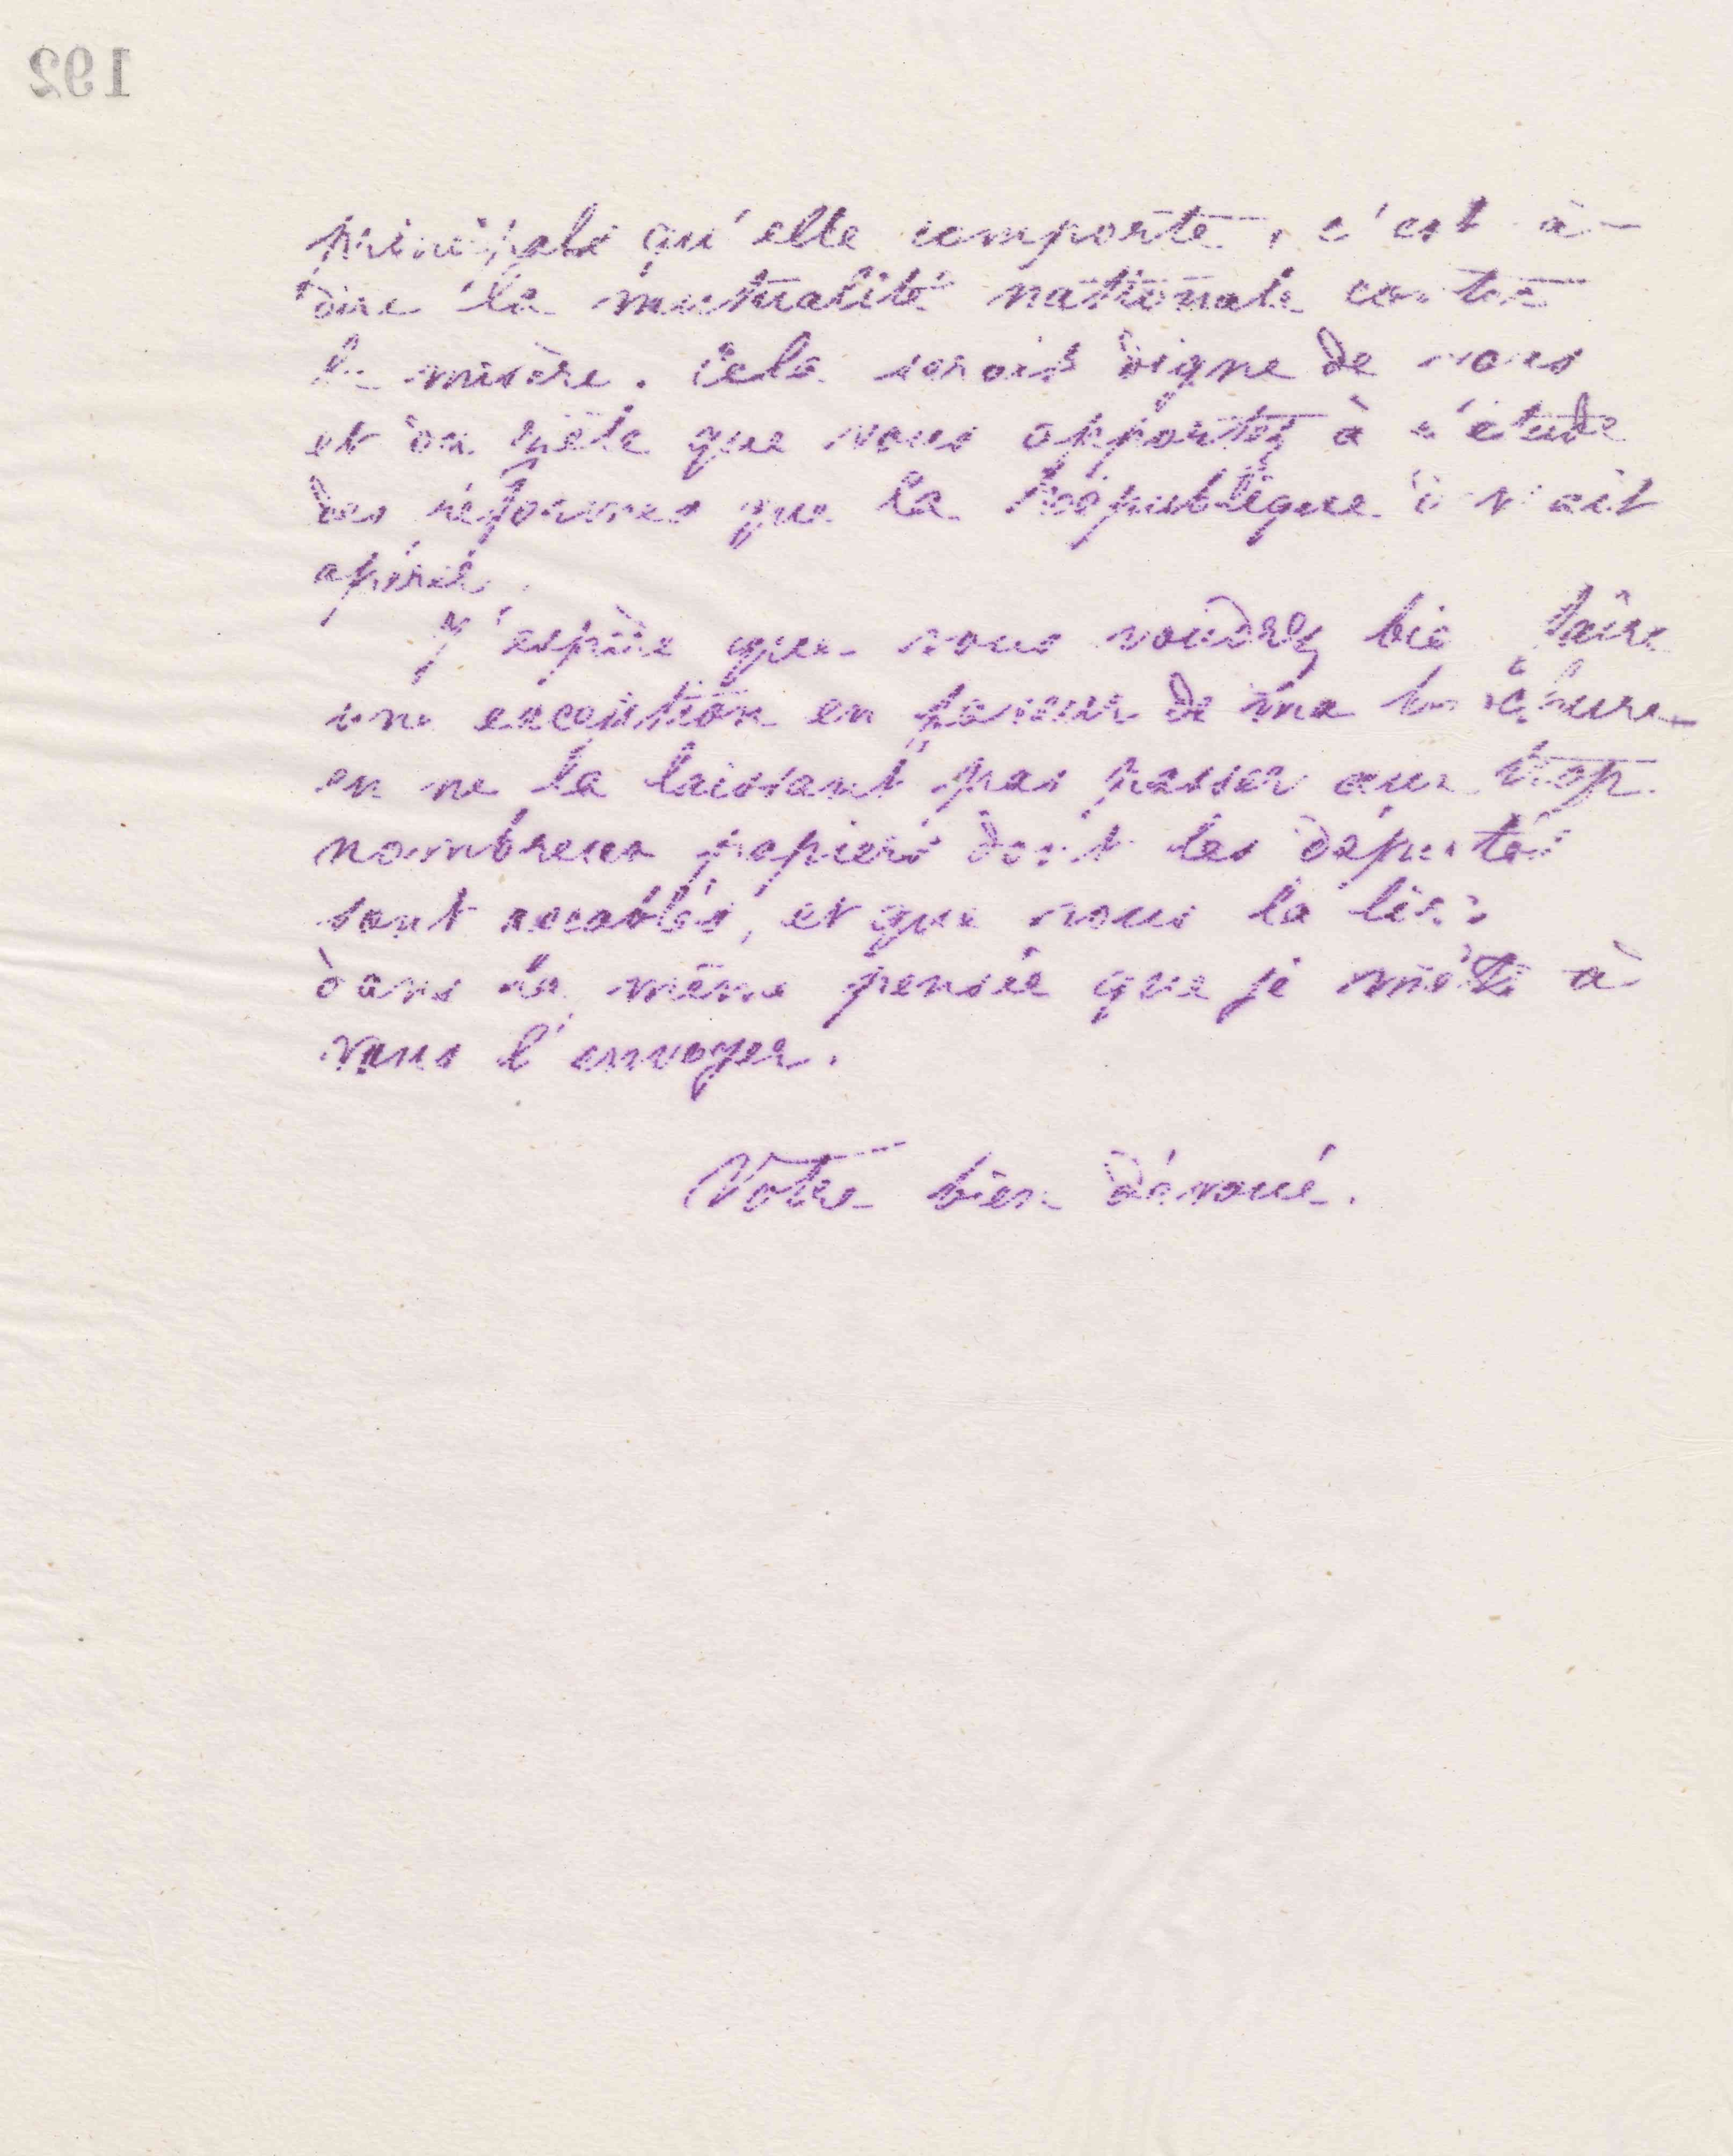 192
principale qu'elle comporte, c'est à-
dire la mutualité nationale contre
la misère. Cela serait digne de vous
et du zèle que vous apportez à l'étude
des réformes que la République devrait
opérer.
J'espère que vous voudrez bien faire
une exception en faveur de ma brochure
en ne la laissant pas passer aux trop
nombreux papiers dont les députés
sont accablés, et que vous la lirez
dans la même pensée que je mets à
vous l'envoyer.
Votre bien dévoué.